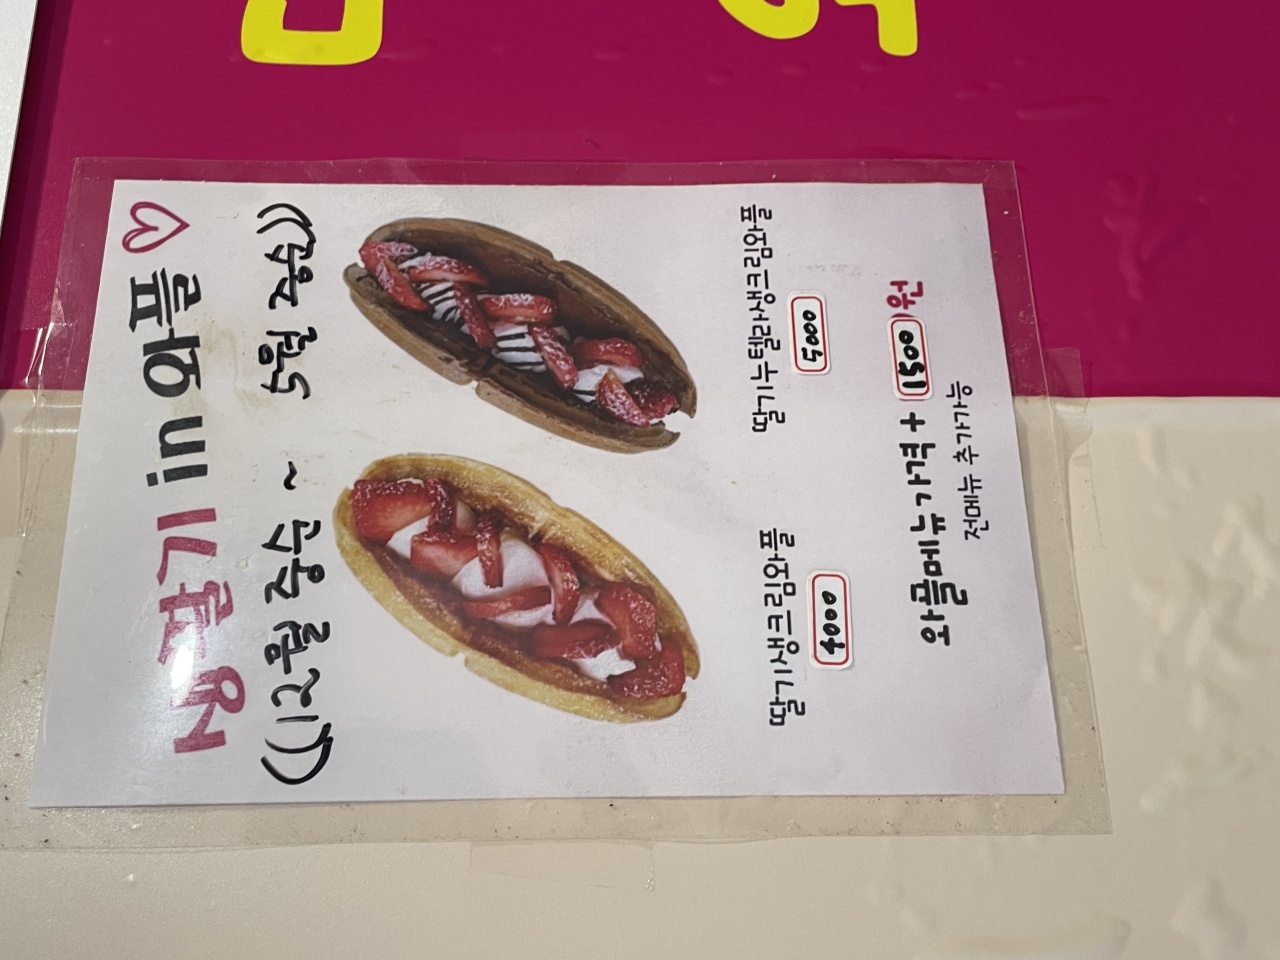 생딸기 in 와플♡
((12월 중순 ~ 5월 중순))
딸기생크림와플
4000
딸기누텔라생크림와플
5000
와플메뉴가격 + 1500원
전메뉴 추가가능